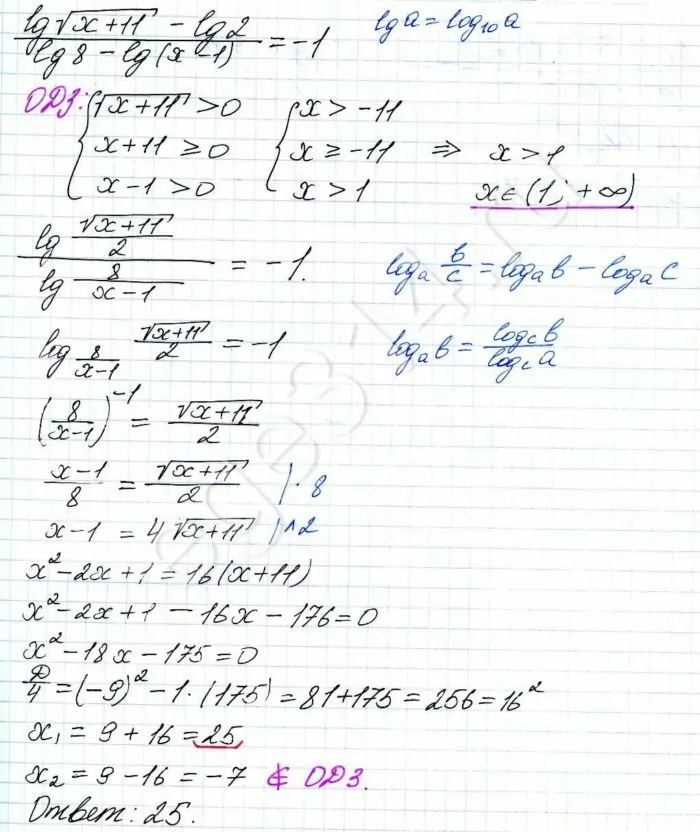 (lg√(x+11) - lg2)/(lg8 - lg(x-1)) = -1   lg a = log₁₀a
ОДЗ: {√(x+11) > 0   {x > -11
x+11 ≥ 0   x ≥ -11 ⇒ x > 1
x-1 > 0   x > 1   x ∈ (1; +∞)
(lg (√(x+11)/2))/(lg (8/(x-1))) = -1.   logₐ(b/c) = logₐb - logₐc
log_(8/(x-1)) (√(x+11)/2) = -1   logₐb = (log_c b)/(log_c a)
(8/(x-1))⁻¹ = √(x+11)/2
(x-1)/8 = √(x+11)/2 | · 8
x-1 = 4√(x+11) |^2
x²-2x+1 = 16(x+11)
x²-2x+1 - 16x - 176 = 0
x²-18x-175 = 0
D/4 = (-9)² - 1·(175) = 81+175 = 256 = 16²
x₁ = 9 + 16 = 25
x₂ = 9 - 16 = -7 ∉ ОДЗ.
Ответ: 25.